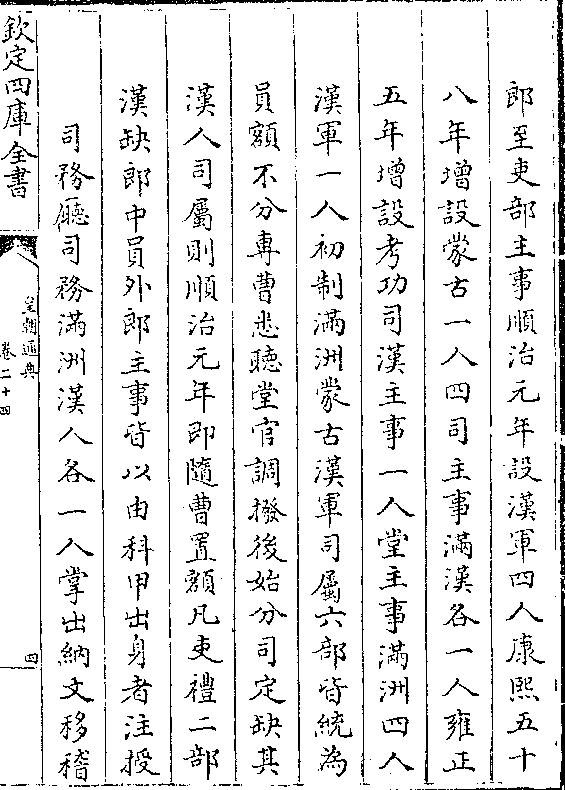 郎至吏部主事順治元年設漢軍四人康熙五十
八年增設蒙古一人四司主事滿漢各一人雍正
五年增設考功司漢主事一人堂主事滿洲四人
漢軍一人初制滿洲蒙古漢軍司屬六部皆統為
員額不分專曹悉聽堂官調撥後始分司定缺其
漢人司屬則順治元年即隨曹置額凡吏禮二部
漢缺郎中員外郎主事皆以由科甲出身者注授
司務廳司務滿洲漢人各一人掌出納文移稽
欽定四庫全書
皇朝通典
卷二十四
四